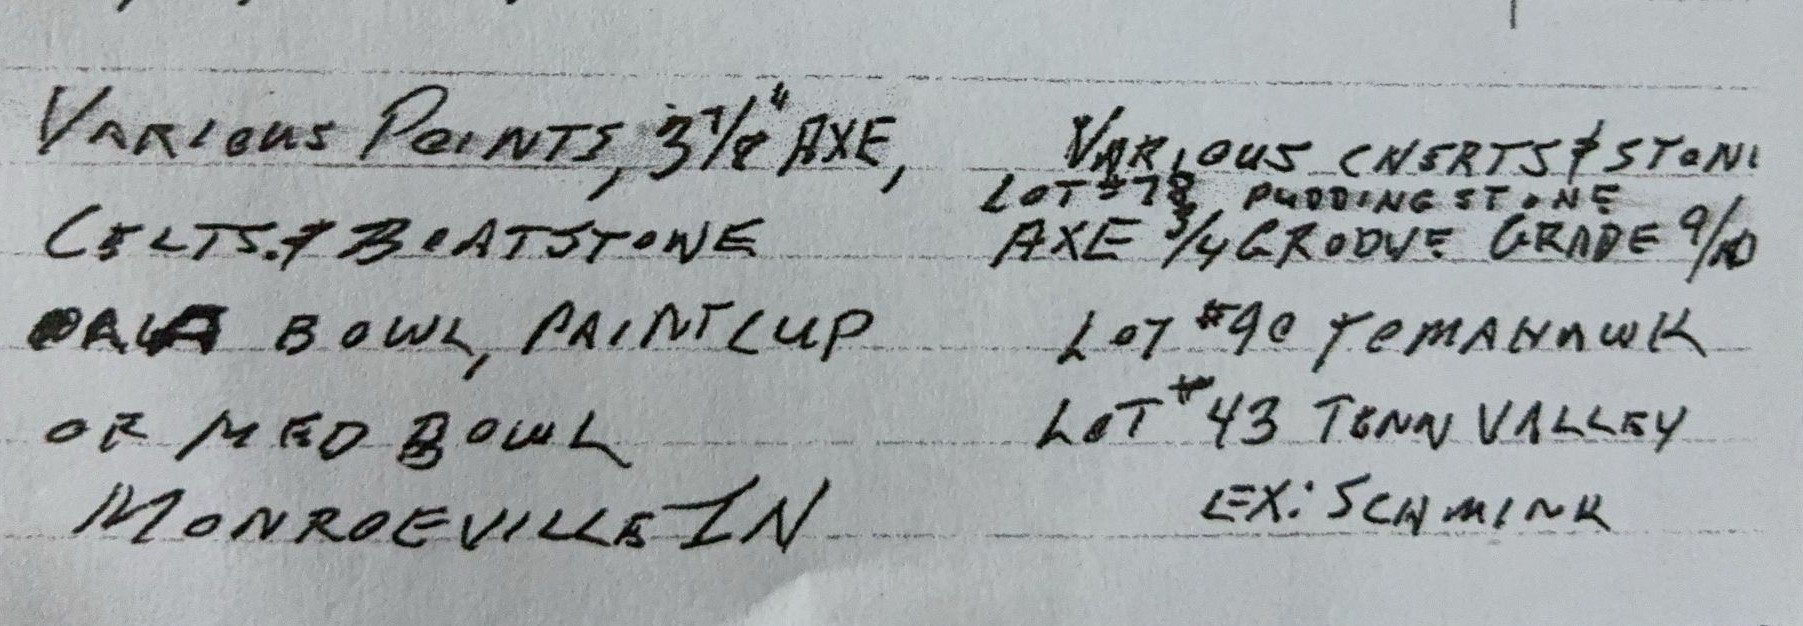 VARIOUS POINTS, 3 7/8" AXE,
CELTS & BOATSTONE
BOWL, PAINT CUP
OR MED BOWL
MONROEVILLE IN
VARIOUS CHERTS & STONE
LOT #78 PUDDINGSTONE
AXE 3/4 GROOVE GRADE 9/10
LOT #90 TOMAHAWK
LOT #43 TENN VALLEY
EX: SCHMINK